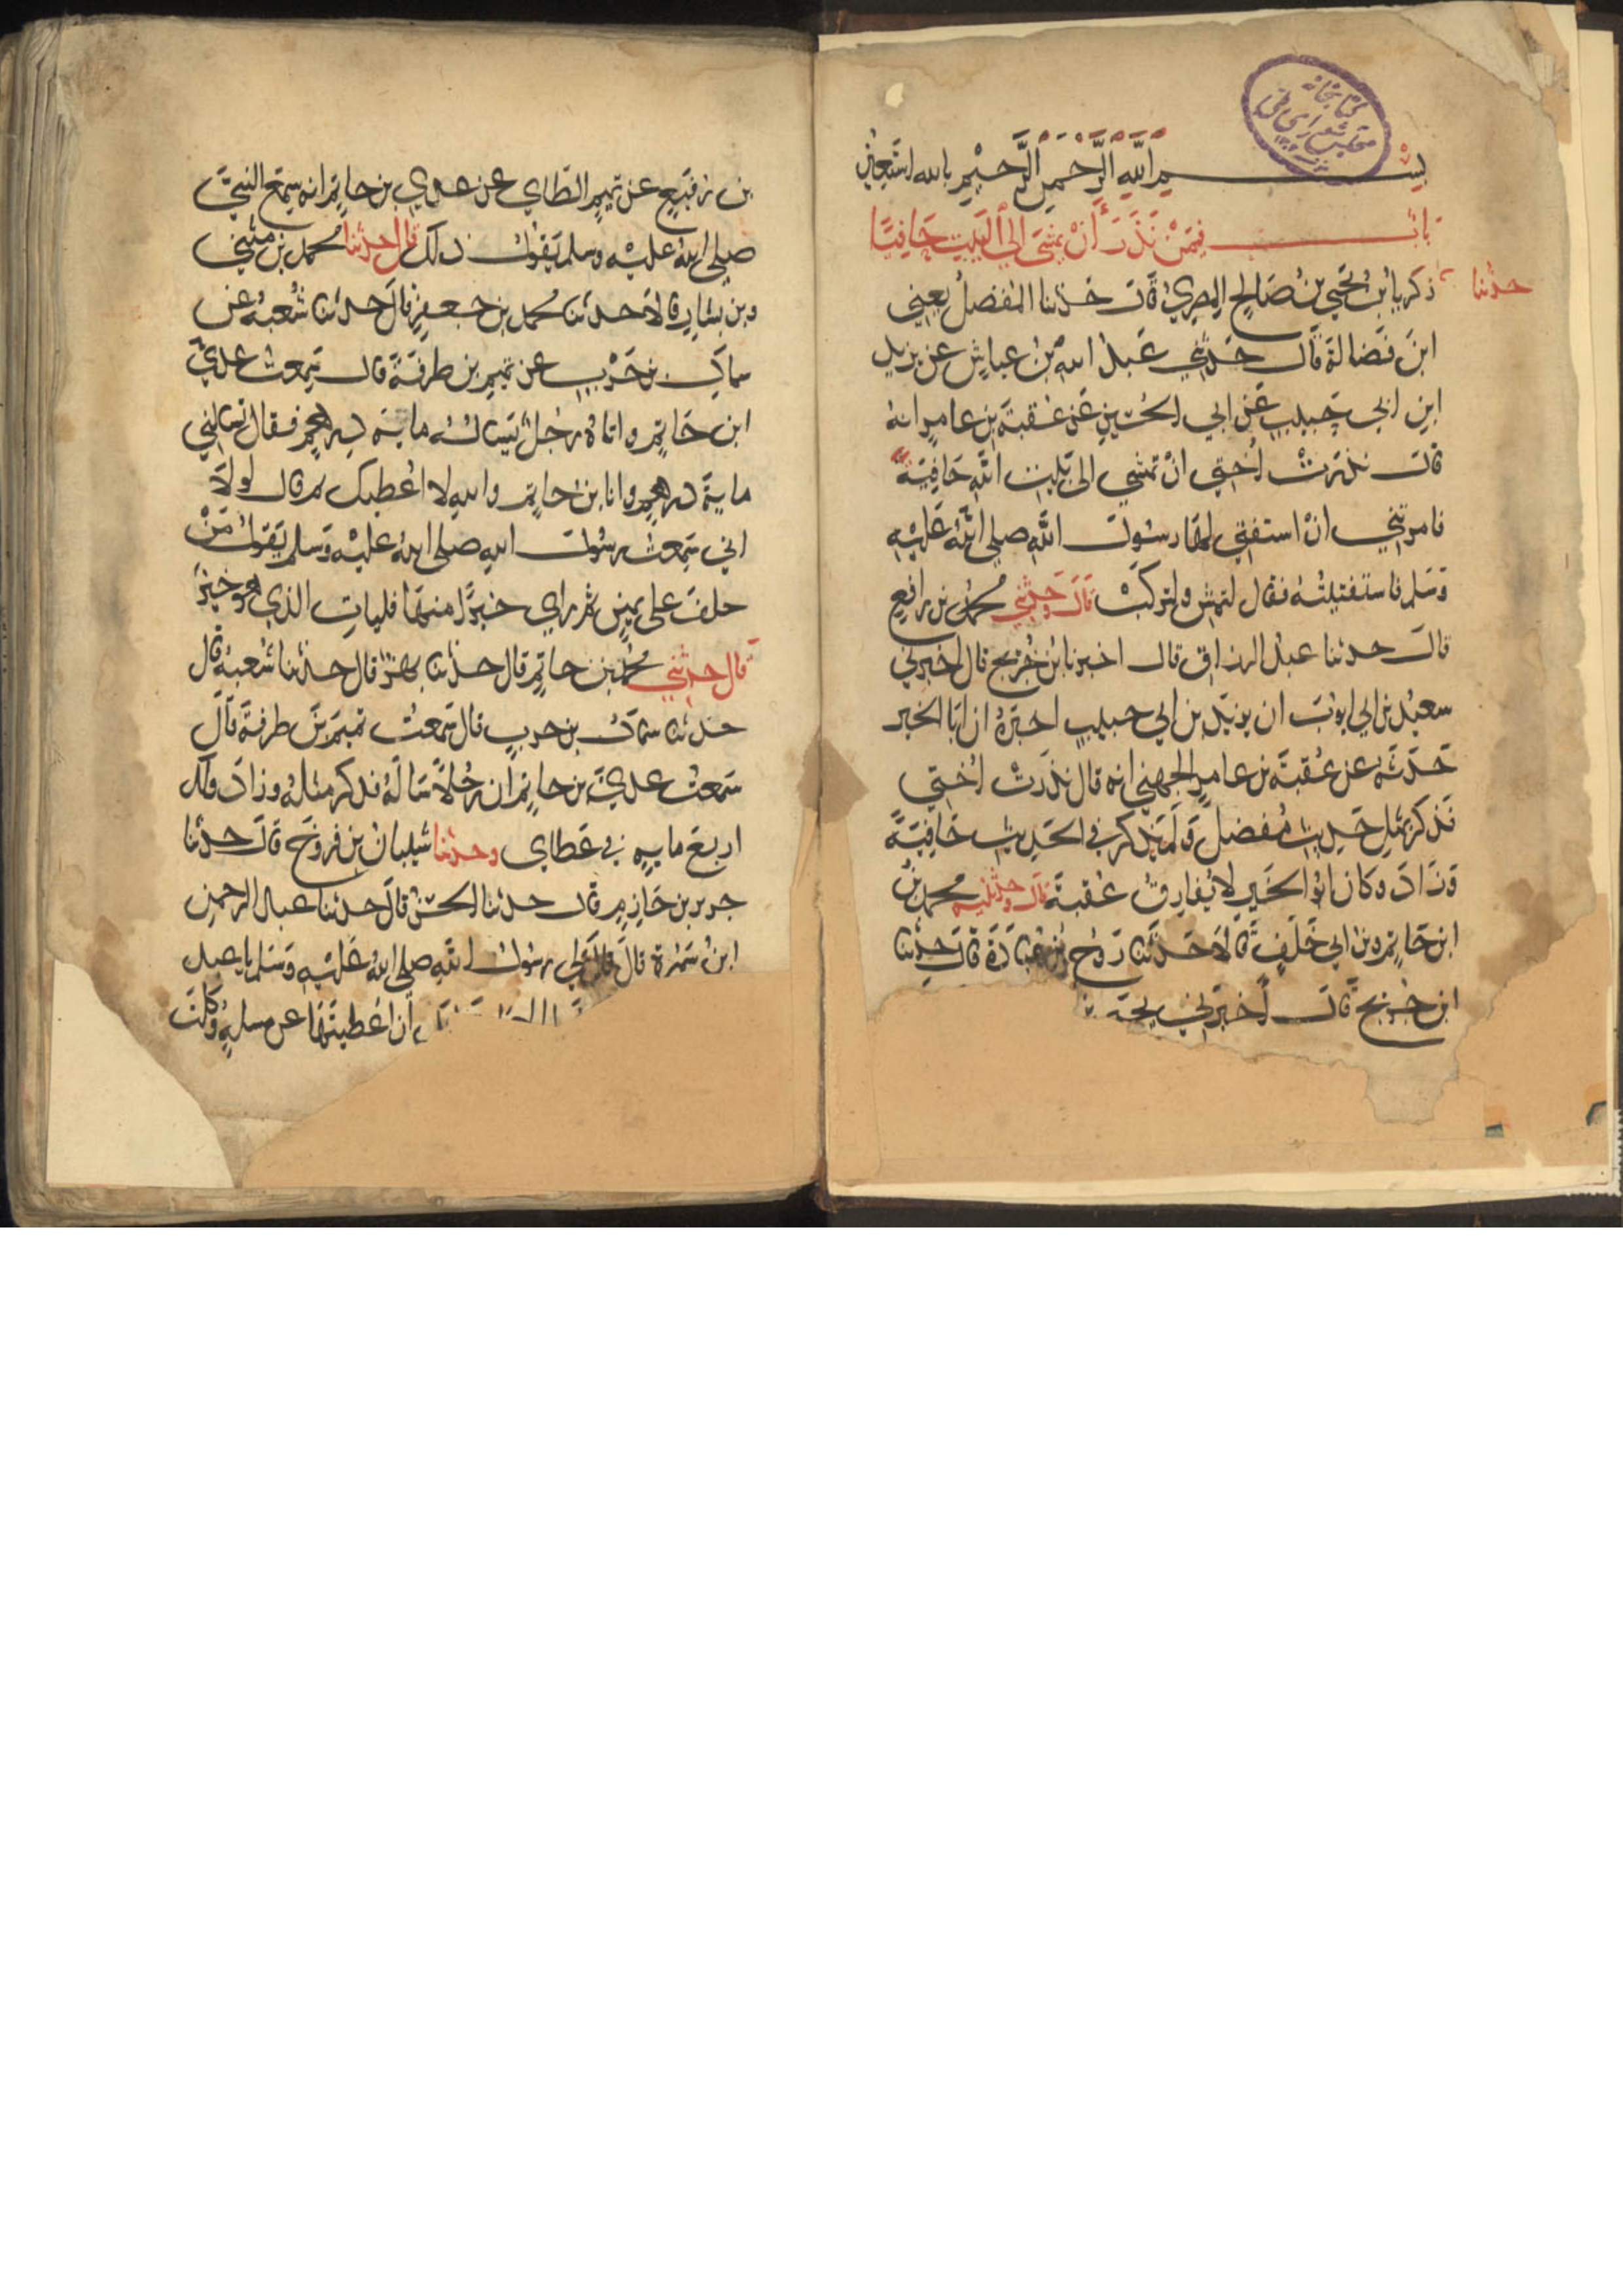 بســـــم الله الرحمن الرحيم بالله استعين
باب فيمن نذر أن يمشي الي البيت حافيا
حدثنا زكريا بن يحيي بن صالح المصري قال حدثنا المفضل يعني
ابن فضالة قال حدثني عبد الله بن عياش عن يزيد
ابن ابي حبيب عن ابي الخير عن عقبة بن عامر انه
قال نذرت اختي ان تمشي الى بيت الله حافية
فامرتني ان استفتي لها رسول الله صلى الله عليه
وسلم فاستفتيته فقال لتمش ولتركب قال وحدثني محمد بن رافع
قال حدثنا عبد الرزاق قال اخبرنا ابن جريج قال اخبرني
سعيد بن ابي ايوب ان يزيد بن ابي حبيب اخبره ان ابا الخير
حدثه عن عقبة بن عامر الجهني انه قال نذرت اختي
فذكر بمثل حديث مفضل ولم يذكر في الحديث حافية
وزاد وكان ابو الخير لا يفارق عقبة قال وحدثنيه محمد بن
ابن حاتم وبن ابي خلف قالا حدثنا روح بن عبادة قال حدثنا
ابن جريج قال اخبرني يحيى
بن رفيع عن تميم الطاي عن عدي بن حاتم انه سمع النبي
صلى الله عليه وسلم يقول ذلك قال حدثنا محمد بن مثنى
وبن بشار قالا حدثنا محمد بن جعفر قال حدثنا شعبة عن
سماك بن حرب عن تميم بن طرفة قال سمعت عدي
ابن حاتم واتاه رجل يساله ماية درهم فقال تسالني
ماية درهم وانا بن حاتم والله لا اعطيك ثم قال لولا
اني سمعت رسول الله صلى الله عليه وسلم يقول من
حلف على يمين ثم راي خيرا منها فليات الذي هو خير
قال حدثني محمد بن حاتم قال حدثنا بهز قال حدثنا شعبة قال
حدثنا سماك بن حرب قال سمعت تميم بن طرفة قال
سمعت عدي بن حاتم ان رجلا ساله فذكر مثله وزاد ولك
اربع ماية في عطاي وحدثنا شيبان بن فروخ قال حدثنا
جرير بن حازم قال حدثنا الحسن قال حدثنا عبد الرحمن
ابن سمرة قال قال لي رسول الله صلى الله عليه وسلم يا عبد
ان اعطيتها عن مسلة وكلت